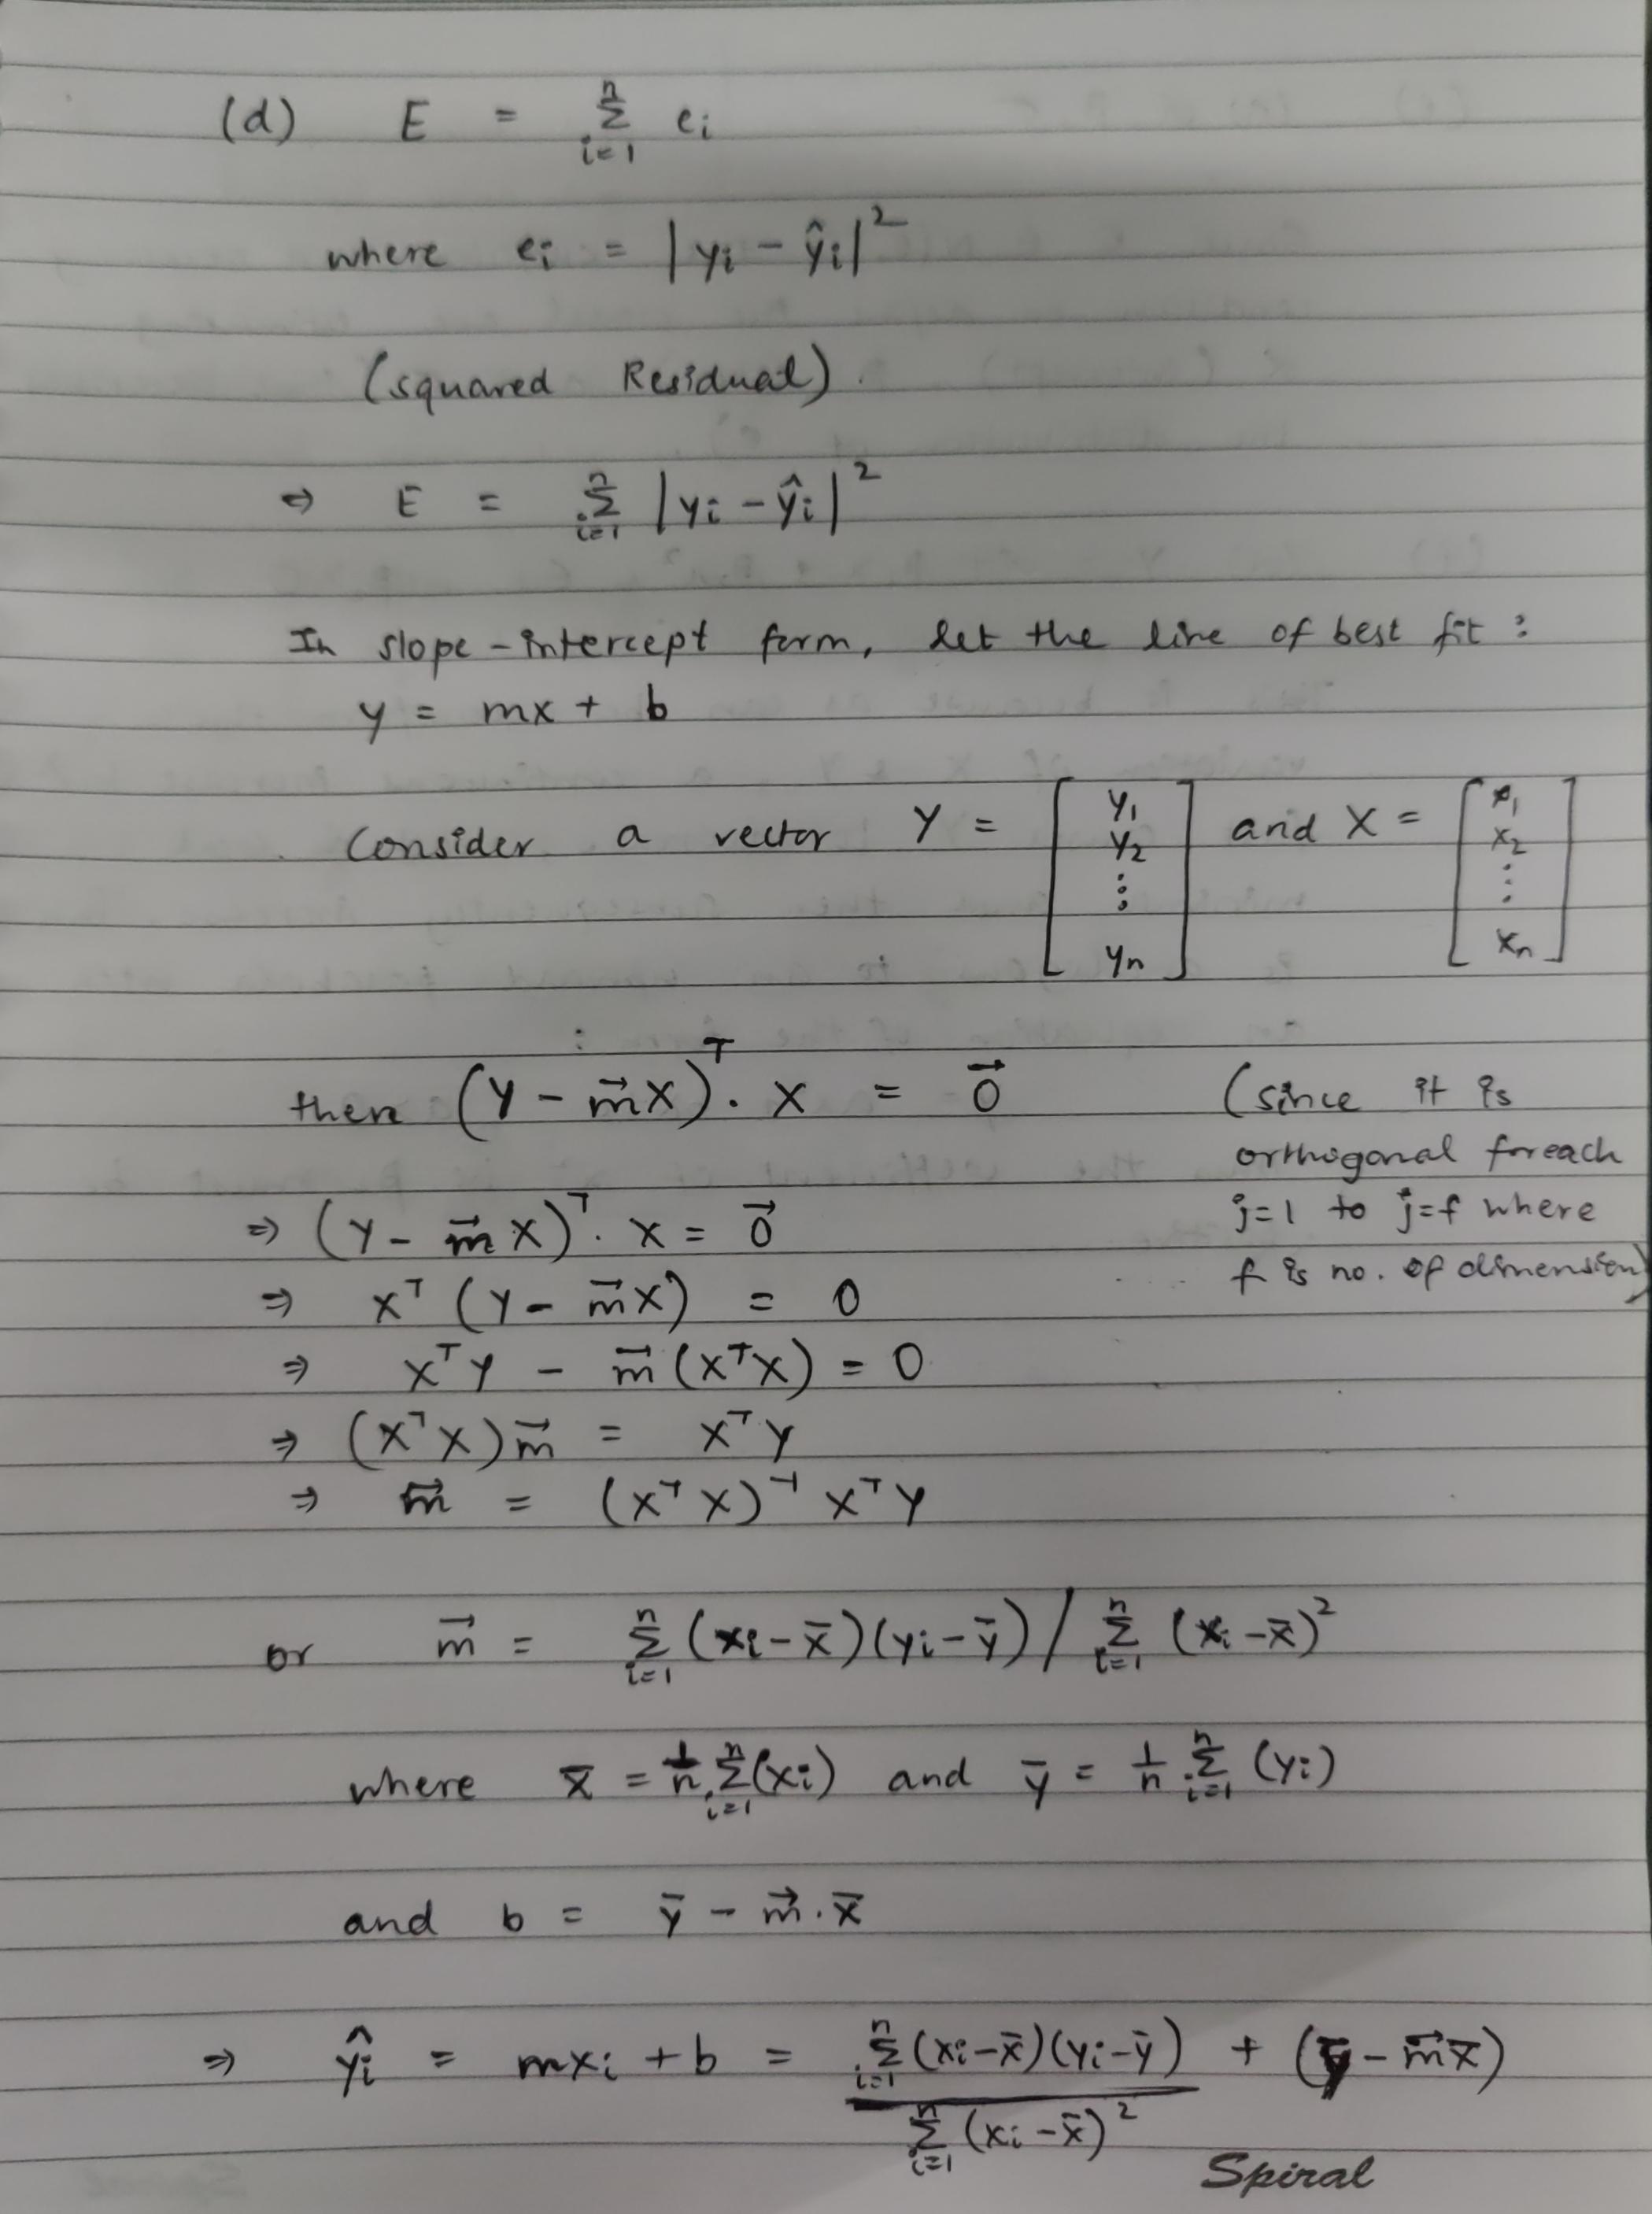 (d) E = Σ_{i=1}^{n} eᵢ
where eᵢ = |yᵢ - ŷᵢ|²
(squared Residual).
⇒ E = Σ_{i=1}^{n} |yᵢ - ŷᵢ|²
In slope-intercept form, let the line of best fit :
y = mx + b
Consider a vector Y = [y₁ y₂ ⋮ yₙ] and X = [x₁ x₂ ⋮ xₙ]
then (Y - m⃗X)ᵀ. X = 0⃗ (since it is
orthogonal foreach
j=1 to j=f where
f is no. of dimension)
⇒ (Y - m⃗X)ᵀ. X = 0⃗
⇒ Xᵀ (Y - m⃗X) = 0
⇒ XᵀY - m⃗(XᵀX) = 0
⇒ (XᵀX)m⃗ = XᵀY
⇒ m⃗ = (XᵀX)⁻¹ XᵀY
or m⃗ = Σ_{i=1}^{n} (xᵢ - x̄)(yᵢ - ȳ) / Σ_{i=1}^{n} (xᵢ - x̄)²
where x̄ = 1/n Σ_{i=1}^{n} (xᵢ) and ȳ = 1/n Σ_{i=1}^{n} (yᵢ)
and b = ȳ - m⃗.x̄
⇒ ŷᵢ = mxᵢ + b = Σ_{i=1}^{n} (xᵢ - x̄)(yᵢ - ȳ) / Σ_{i=1}^{n} (xᵢ - x̄)² + (ȳ - m⃗x̄)
Spiral